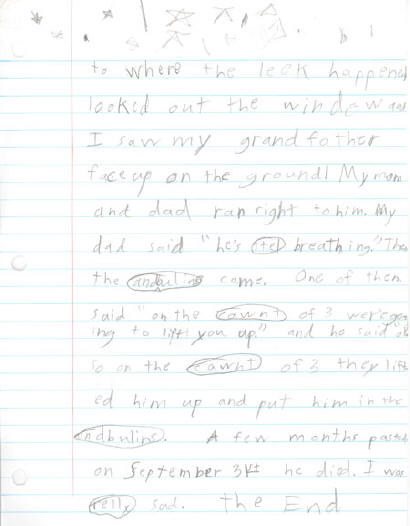 to where the leek happened
looked out the window and
I saw my grandfather
face up on the ground! My mom
and dad ran right to him. My
dad said "he's stel breathing." Then
the andbulins came. One of them
said "on the cawnt of 3 were go
ing to lift you up." and he said ok
so on the cawnt of 3 they lift
ed him up and put him in the
andbulins. A few months pasted
on September 31st he died. I was
relly sad. the End